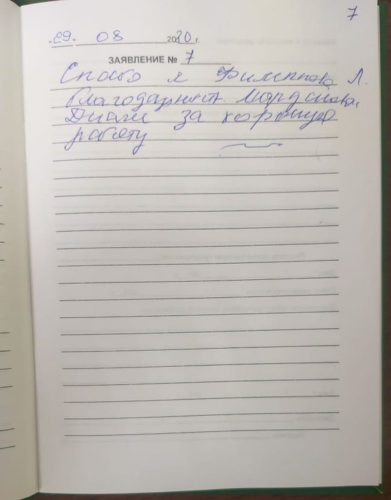 7
09. 08 2020 г.
ЗАЯВЛЕНИЕ № 7
Спасибо я Филиппова Л.
благодарност.
за хорошую
работу